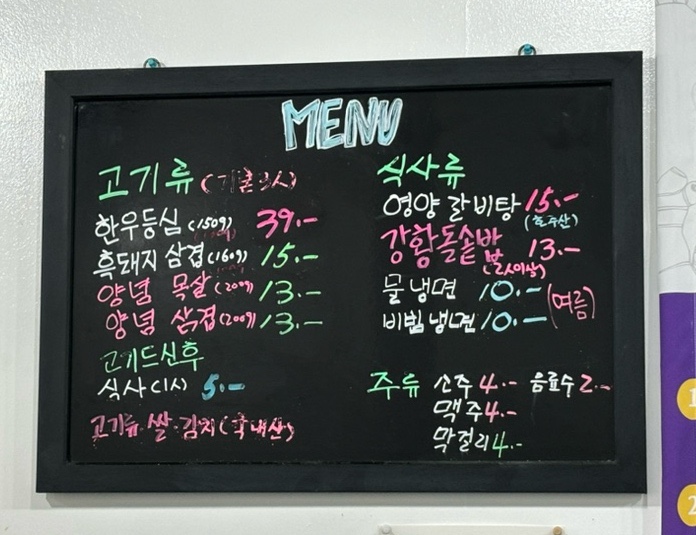 MENU
고기류 (기본2인)
한우등심 (150g) 39.-
흑돼지 삼겹 (160g) 15.-
양념 목살 (200g) 13.-
양념 삼겹 (200g) 13.-
고기드신후
식사 (1人) 5.-
고기류·쌀·김치 (국내산)
식사류
영양 갈비탕 15.-
(호주산)
강황돌솥밥 13.-
(2人이상)
물냉면 10.-
비빔냉면 10.-
(여름)
주류 소주 4.- 음료수 2.-
맥주 4.-
막걸리 4.-
1
2